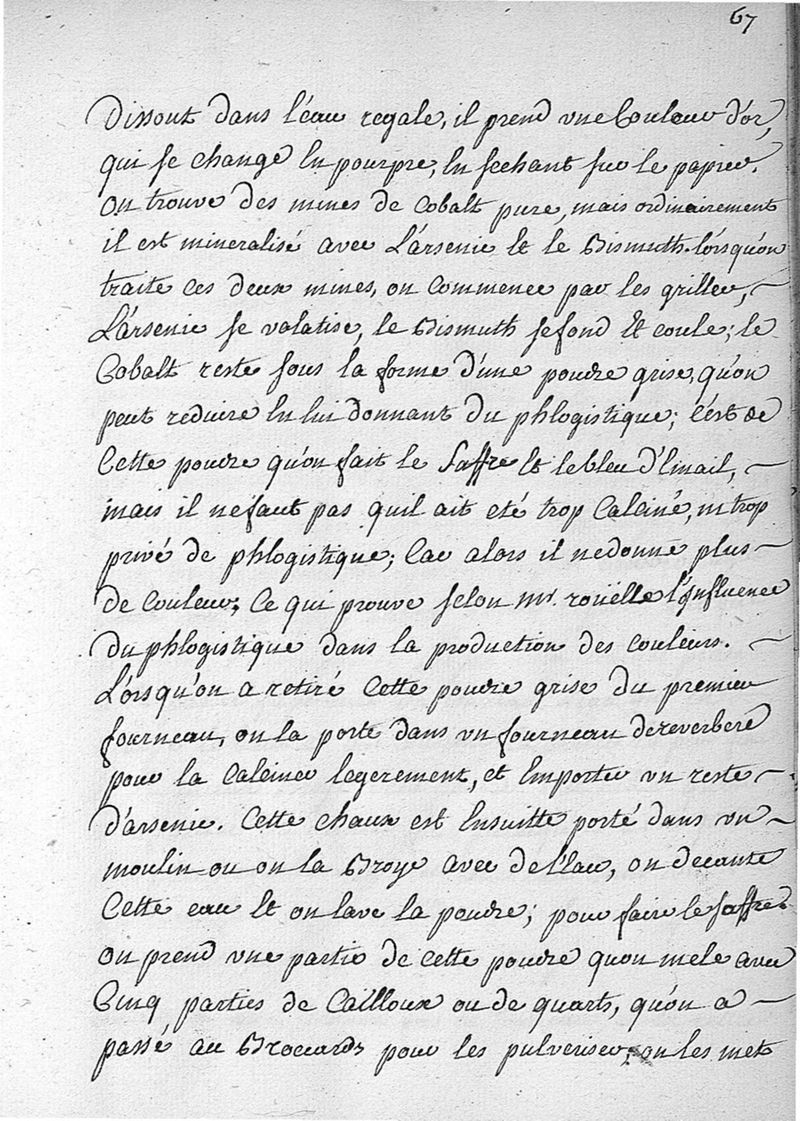 67
Dissout dans l'éau regale, il prend une Couleur d'or,
qui se change En pourpre, En sechant sur le papier.
On trouve des mines de Cobalt pure, mais ordinairement
il est mineralisé avec L'arsenic Et le Bismuth. lorsqu'on
traite ces deux mines, on Commence par les griller, ~
L'arsenic se volatise, le Bismuth se fond Et coule; le
Cobalt reste sous la forme d'une poudre grise, qu'on
peut reduire En lui donnant du phlogistique; C'est de
Cette poudre qu'on fait le Saffre Et le bleu d'Email, ~
mais il ne faut pas quil ait eté trop Calciné, ni trop
privé de phlogistique; Car alors il ne donne plus ~
de Couleur; Ce qui prouve selon mr. roüelle l'Influence
du phlogistique dans la production des couleurs. ~
Lorsqu'on a retiré Cette poudre grise du premier
fourneau, on la porte dans un fourneau de reverbere
pour la Calciner legerement, et Emporter un reste ~
d'arsenic. Cette chaux est Ensuitte porté dans un ~
moulin ou on la Broye avec de l'Eau, on decante
Cette eau Et on lave la poudre; pour faire le saffre
on prend une partie de cette poudre quon mele avec
Cinq parties de Cailloux ou de quarts, qu'on a ~
passé au Broccards pour les pulveriser; on les met